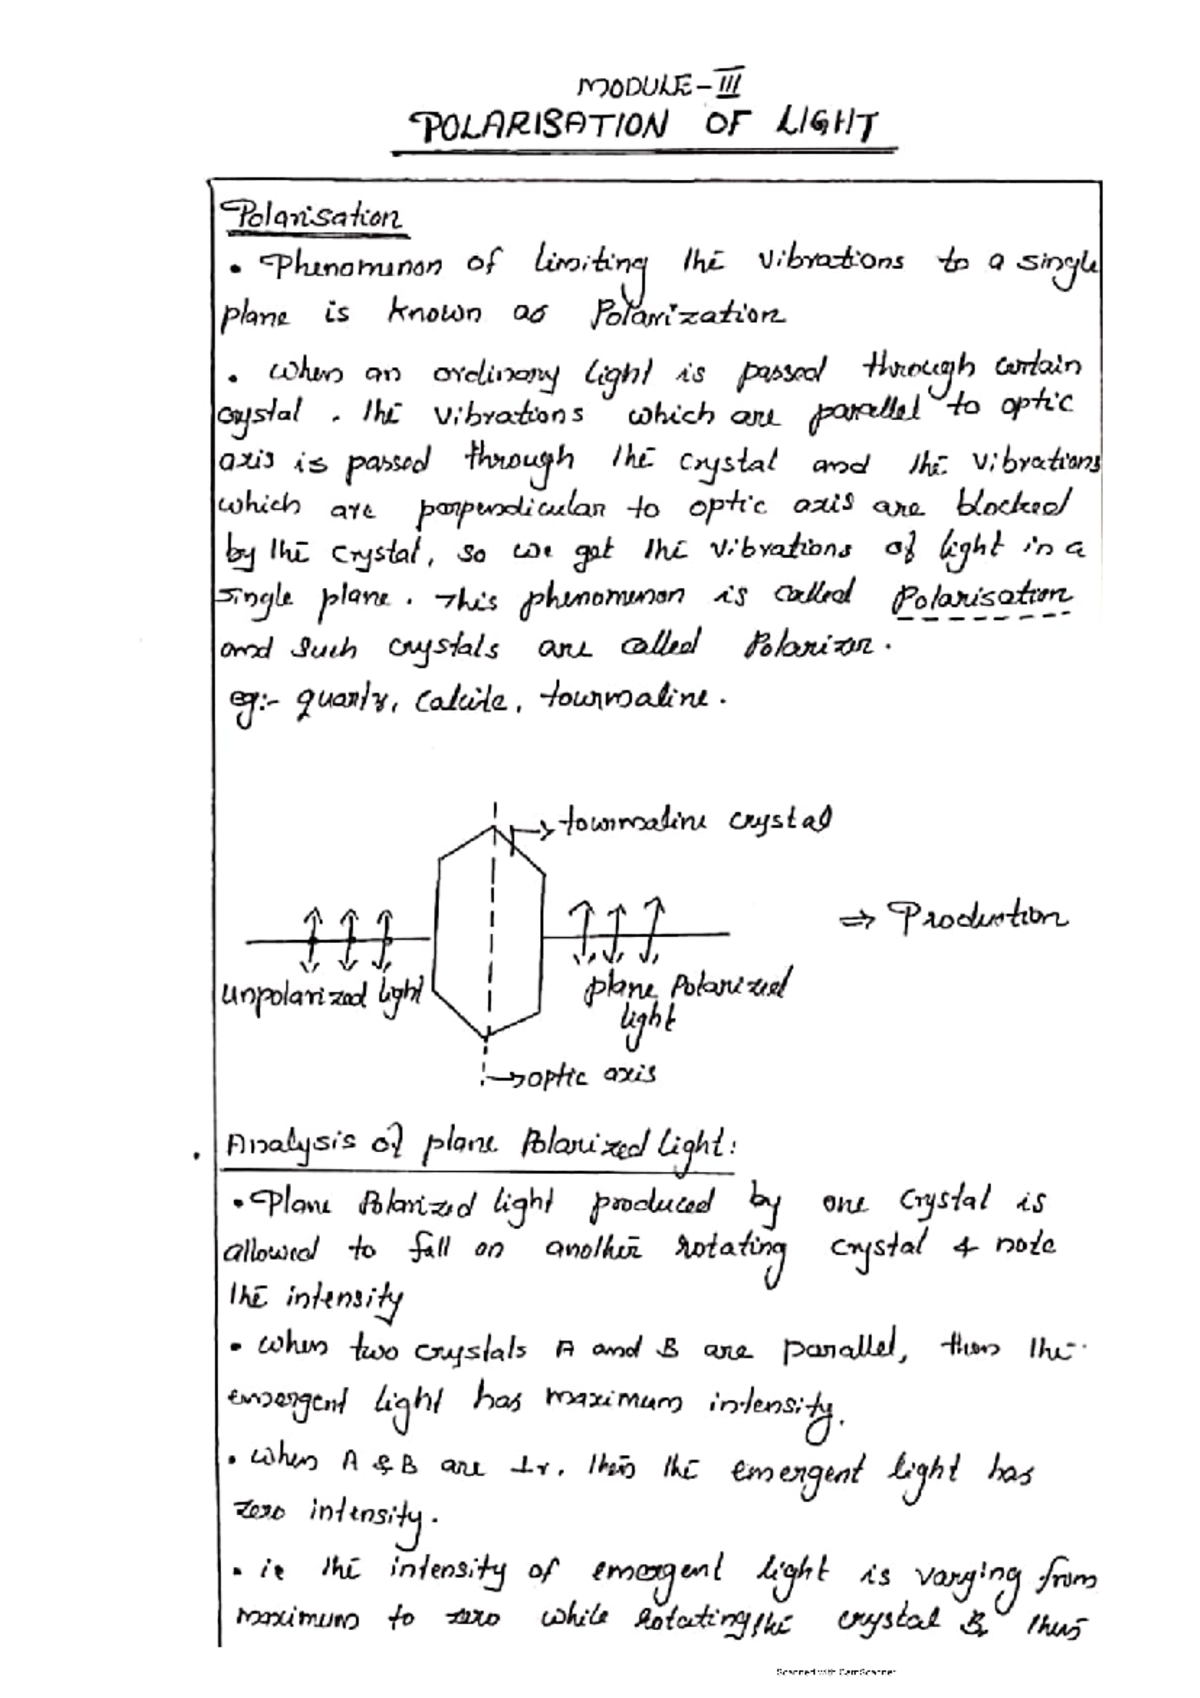 MODULE-III
POLARISATION OF LIGHT
Polarisation
• Phenomenon of limiting the vibrations to a single
plane is known as Polarization
• When an ordinary light is passed through certain
crystal. The vibrations which are parallel to optic
axis is passed through the crystal and the vibrations
which are perpendicular to optic axis are blocked
by the crystal, so we get the vibrations of light in a
single plane. This phenomenon is called Polarisation
and such crystals are called Polarizer.
eg:- quartz, calcite, tourmaline.
→ tourmaline crystal
⇒ Production
unpolarized light
plane Polarized
light
→ optic axis
• Analysis of plane Polarized light:
• Plane Polarized light produced by one crystal is
allowed to fall on another rotating crystal & note
the intensity
• when two crystals A and B are parallel, then the
emergent light has maximum intensity.
• when A & B are ⊥r, then the emergent light has
zero intensity.
• ie the intensity of emergent light is varying from
maximum to zero while rotating the crystal B, thus
Scanned with CamScanner